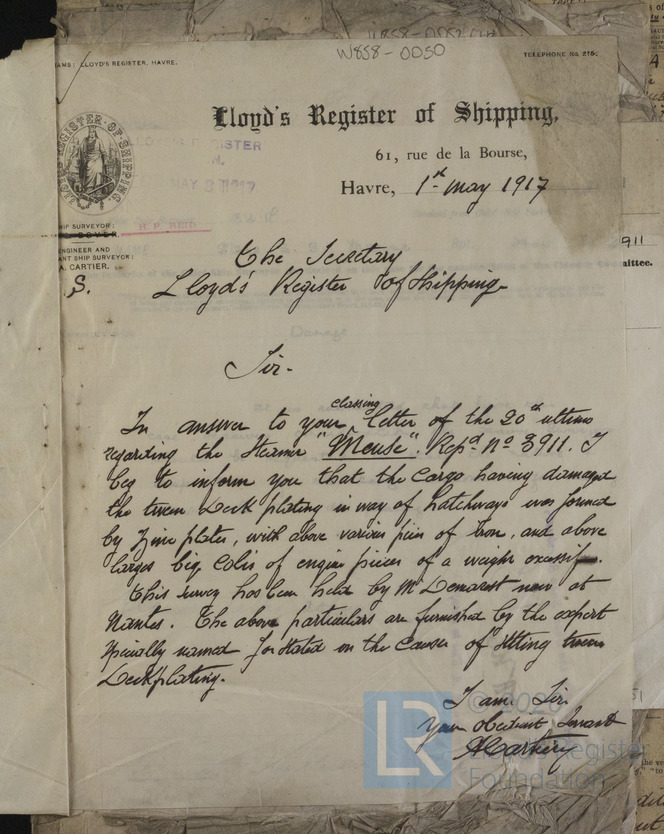 W858-0050
AMS: LLOYD'S REGISTER, HAVRE.
TELEPHONE No 275.
Lloyd's Register of Shipping,
61, rue de la Bourse,
Havre, 1st May 1917
LLOYD'S REGISTER OF SHIPPING
MAY 3 1917
HIP SURVEYOR:
H. P. REID
ENGINEER AND
ANT SHIP SURVEYOR:
A. CARTIER.
S.
911
mittee.
The Secretary
Lloyd's Register of Shipping
Damage
Sir.
classing
In answer to your letter of the 20th ultimo
regarding the Steamer "Meuse". Repd No 3911. I
beg to inform you that the Cargo having damaged
the tween Deck plating in way of hatchways was formed
by Zinc plates, with above various pieces of Iron, and above
larges big Colis of engine pieces of a weight excessif.
This survey has been held by Mr Demarest now at
Nantes. The above particulars are furnished by the expert
specially named for stated on the causes of setting tween
Deck plating.
I am Sir.
Your Obedient Servant
ACartier
LR
© 2020
Lloyd's Register
Foundation